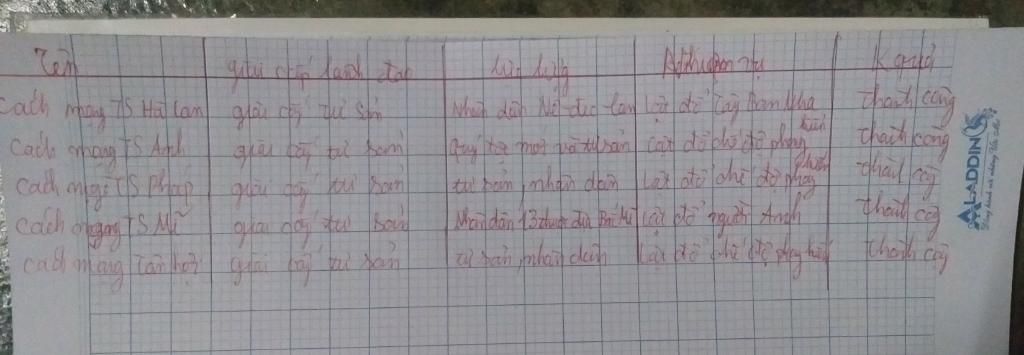 Tên giai cấp lãnh đạo lực lượng Nhiệm vụ K quả
Cách mạng TS Hà Lan giai cấp tư sản Nhân dân Nê-đec-lan Lật đổ Tây Ban Nha thành công
Cách mạng TS Anh giai cấp tư sản quý tộc mới và tư sản Lật đổ chế độ phong kiến thành công
Cách mạng TS Pháp giai cấp tư sản tư sản, nhân dân Lật đổ chế độ phong kiến thành công
Cách mạng TS Mĩ giai cấp tư sản Nhân dân 13 thuộc địa Bắc Mĩ Lật đổ người Anh thành công
Cách mạng Tân hợi giai cấp tư sản tư sản, nhân dân Lật đổ chế độ phong kiến thành công
ALADDIN